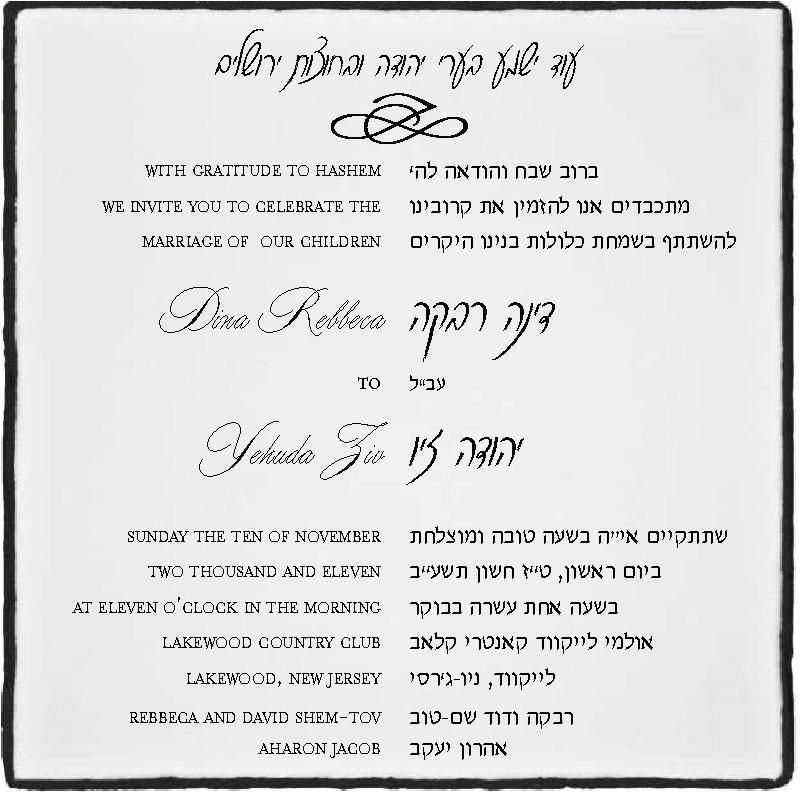 עוד ישמע בערי יהודה ובחוצות ירושלים
WITH GRATITUDE TO HASHEM
WE INVITE YOU TO CELEBRATE THE
MARRIAGE OF OUR CHILDREN
Dina Rebbeca
TO
Yehuda Ziv
SUNDAY THE TEN OF NOVEMBER
TWO THOUSAND AND ELEVEN
AT ELEVEN O'CLOCK IN THE MORNING
LAKEWOOD COUNTRY CLUB
LAKEWOOD, NEW JERSEY
REBBECA AND DAVID SHEM-TOV
AHARON JACOB
ברוב שבח והודאה לה'
מתכבדים אנו להזמין את קרובינו
להשתתף בשמחת כלולות בנינו היקרים
דינה רבקה
עב"ל
יהודה זיו
שתתקיים אי"ה בשעה טובה ומוצלחת
ביום ראשון, ט"ז חשון תשע"ב
בשעה אחת עשרה בבוקר
אולמי לייקווד קאנטרי קלאב
לייקווד, ניו-ג'רסי
רבקה ודוד שם-טוב
אהרון יעקב